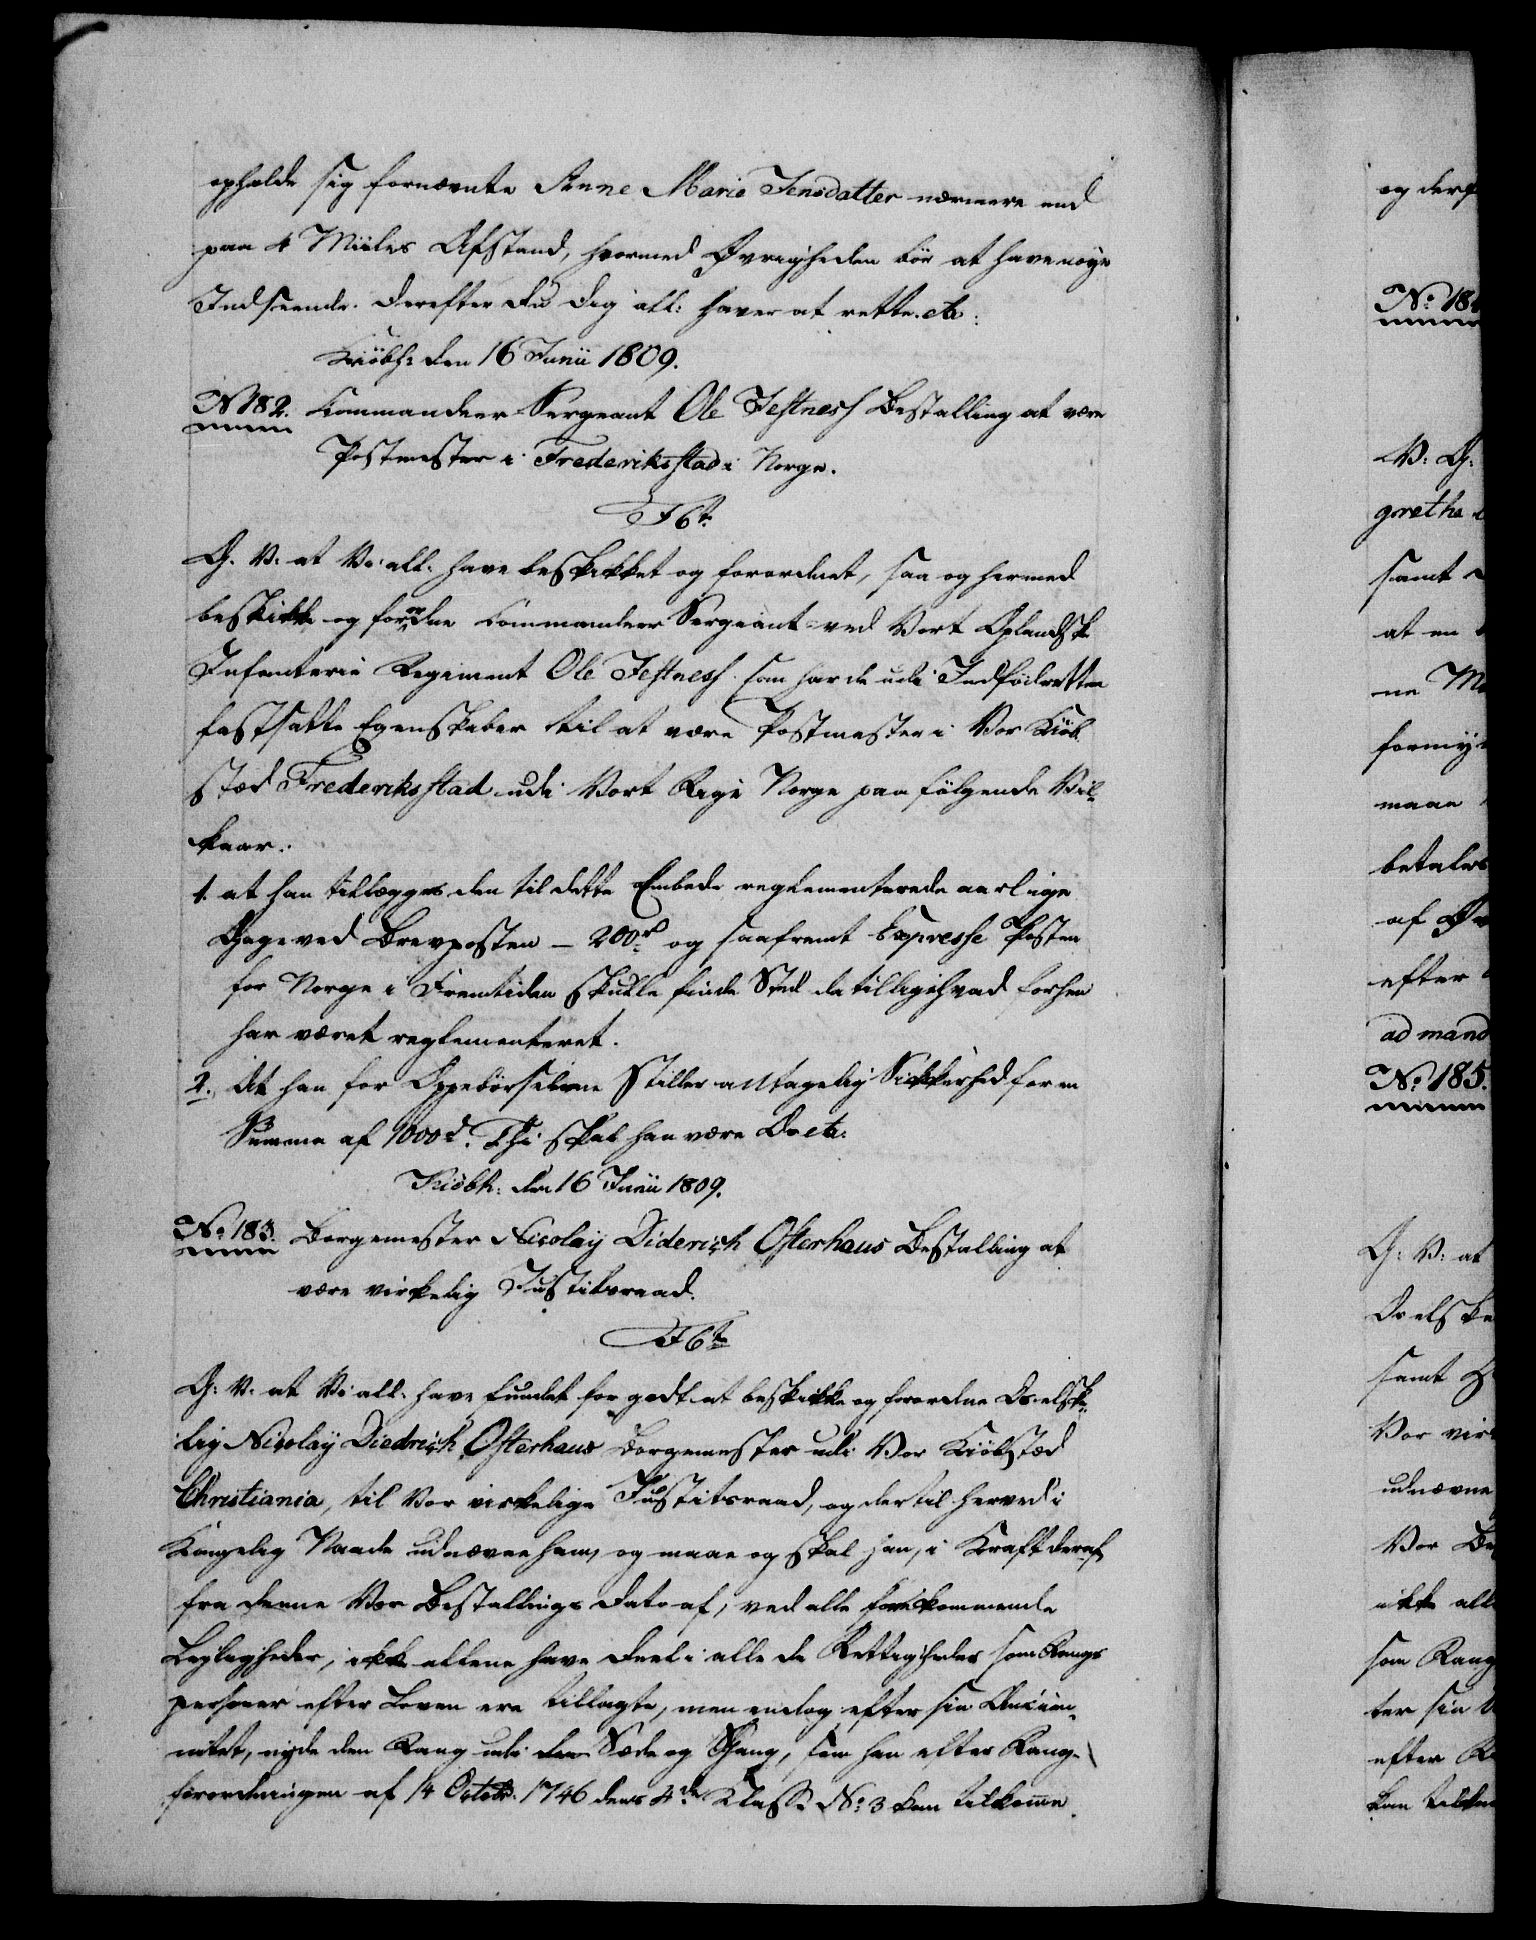 opholde sig fornævnte Anne Marie Jensdatter nærmere end
paa 4 Miiles Afstand, hvormed Øvrigheden bör at have nöye
Indseende. Derefter du dig all: haver at rette. etc:
Kiöbh: den 16 Junii 1809.
No 182. Commandeer Sergeant Ole Testness Bestalling at være
Postmester i Frederiksstad i Norge.
F 6t.
G. V. at Vi all: have beskikket og forordnet, saa og hermed
beskikke og forordne Commandeer Sergeant ved Vort Oplandsk
Infanterie Regiment Ole Testness som har de udi Indfödretten
fastsatte Egenskaber til at være Postmester i Vor Kiöb
stæd Frederiksstad udi Vort Rige Norge paa fölgende Vil-
kaar:
1. at han tillægges den til dette Embede reglementerede aarlige
Gage ved Brevposten - 200 rd og saafremt Expresse Posten
for Norge i Fremtiden skulle finde Sted da tillige hvad forhen
har været reglementeret.
2. At han for Oppebörselerne stiller antagelig Sikkerhed for en
Summa af 1000 rd. Thi skal han være Os etc:
Kiöbh: den 16 Junii 1809.
No 183. Borgemester Nicolay Diderich Osterhaus Bestalling at
være virkelig Justitsraad.
F 6t
G: V: at Vi all: have fundet for godt at beskikke og forordne Os elske-
lig Nicolay Diedrich Osterhaus Borgemester udi Vor Kiöbstæd
Christiania, til Vor virkelige Justitsraad, og dertil herved i
Kongelig Naade udnævne ham, og maae og skal han, i Kraft deraf
fra denne Vor Bestallings Dato af, ved alle forekommende
Leyligheder, ikke allene have Deel i alle de Rettigheder som Rangs
personer efter Loven ere tillagte, men endog efter sin Ancien-
nitet, nyde den Rang udi Sæde og Gang, som han efter Rang-
forordningen af 14 Octobr. 1746 dens 4de Klasse No 3 kan tilkomme.
og derf
No 184
V: G:
grethe
samt
at en
ne
formy
maae
betales
af
efter
ad mand
No 185.
G: V: at
Os elske
samt
Vor vir
udnævne
Vor Be
ikke all
som Rang
ter sin
efter
kan tilkom